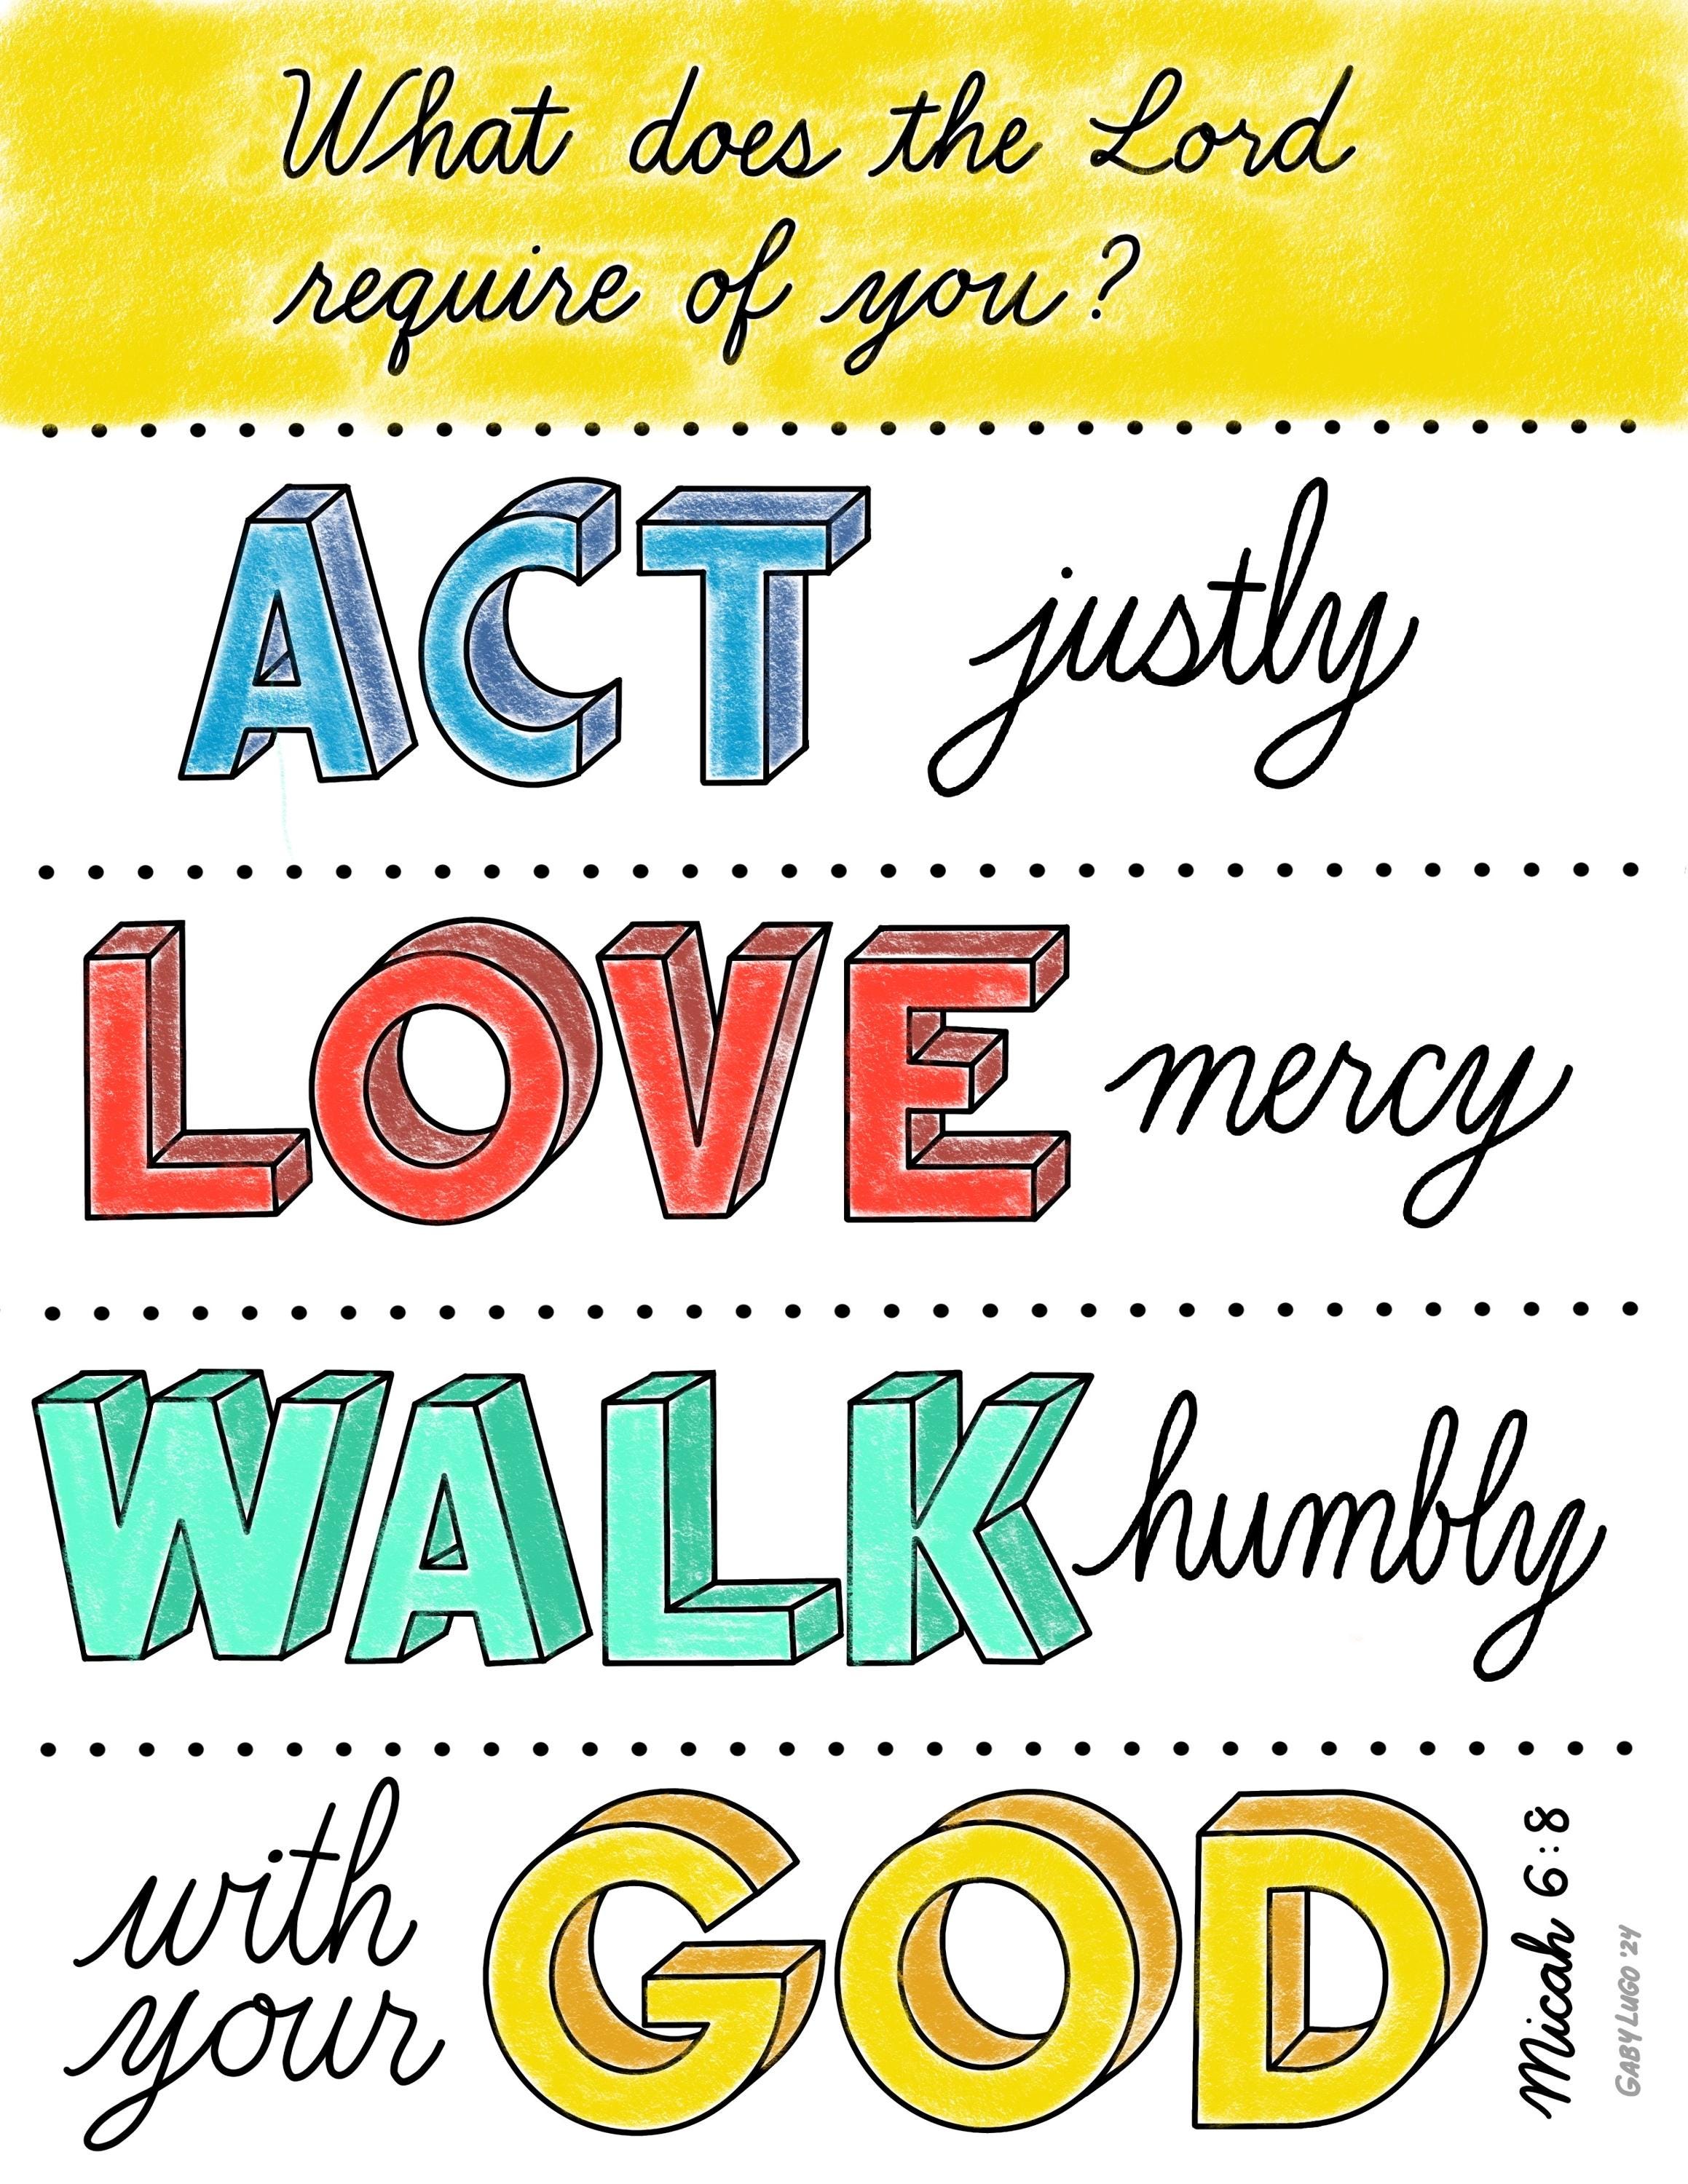 What does the Lord
require of you?
ACT justly
LOVE mercy
WALK humbly
with
your
GOD
Micah 6:8
GABY LUGO '24